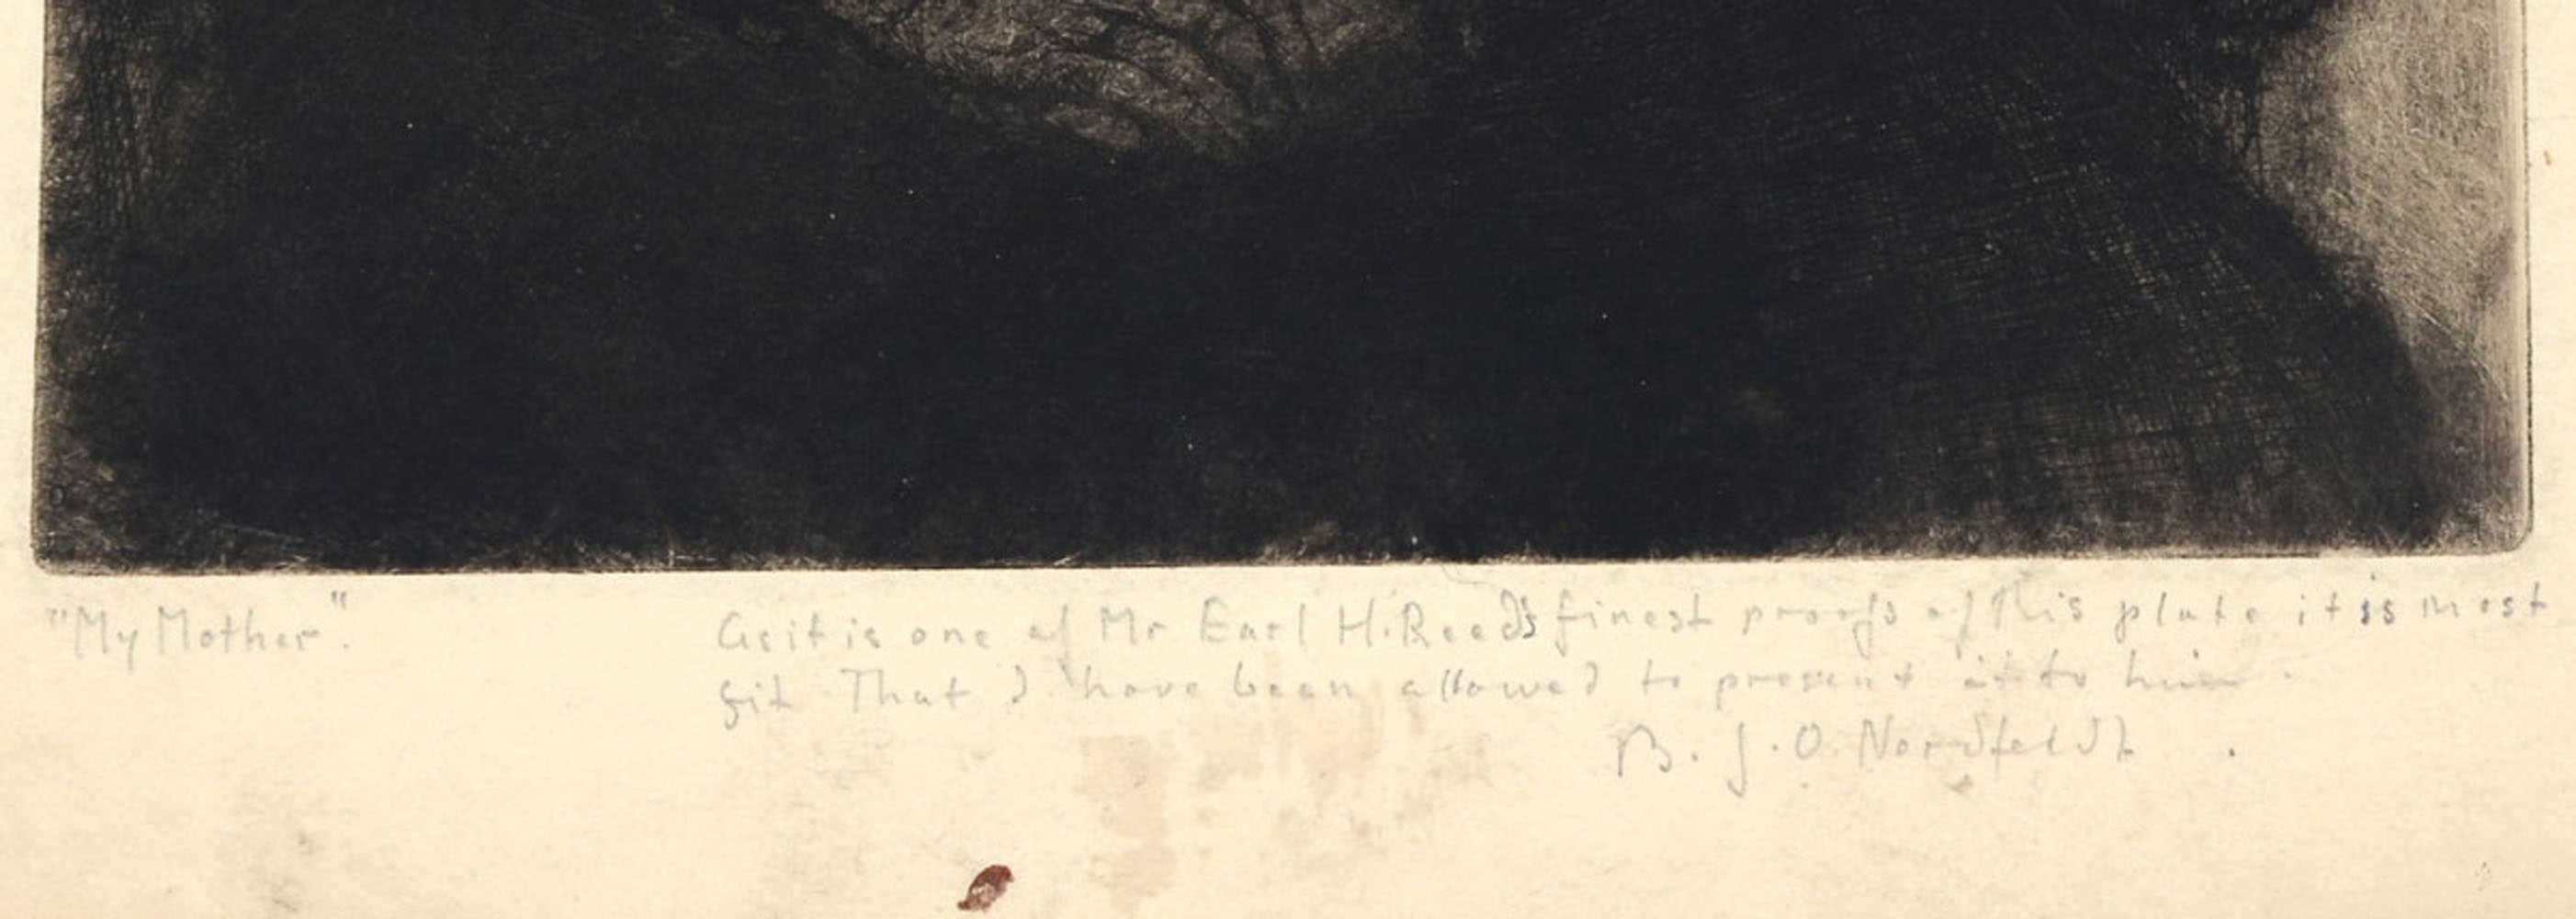 "My Mother".
As it is one of Mr Earl H. Reed's finest proofs of this plate it is most
fit That I have been allowed to present it to him.
B. J. O. Nordfeldt.